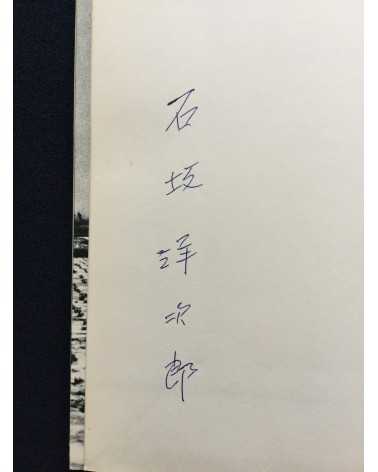 石坂洋次郎